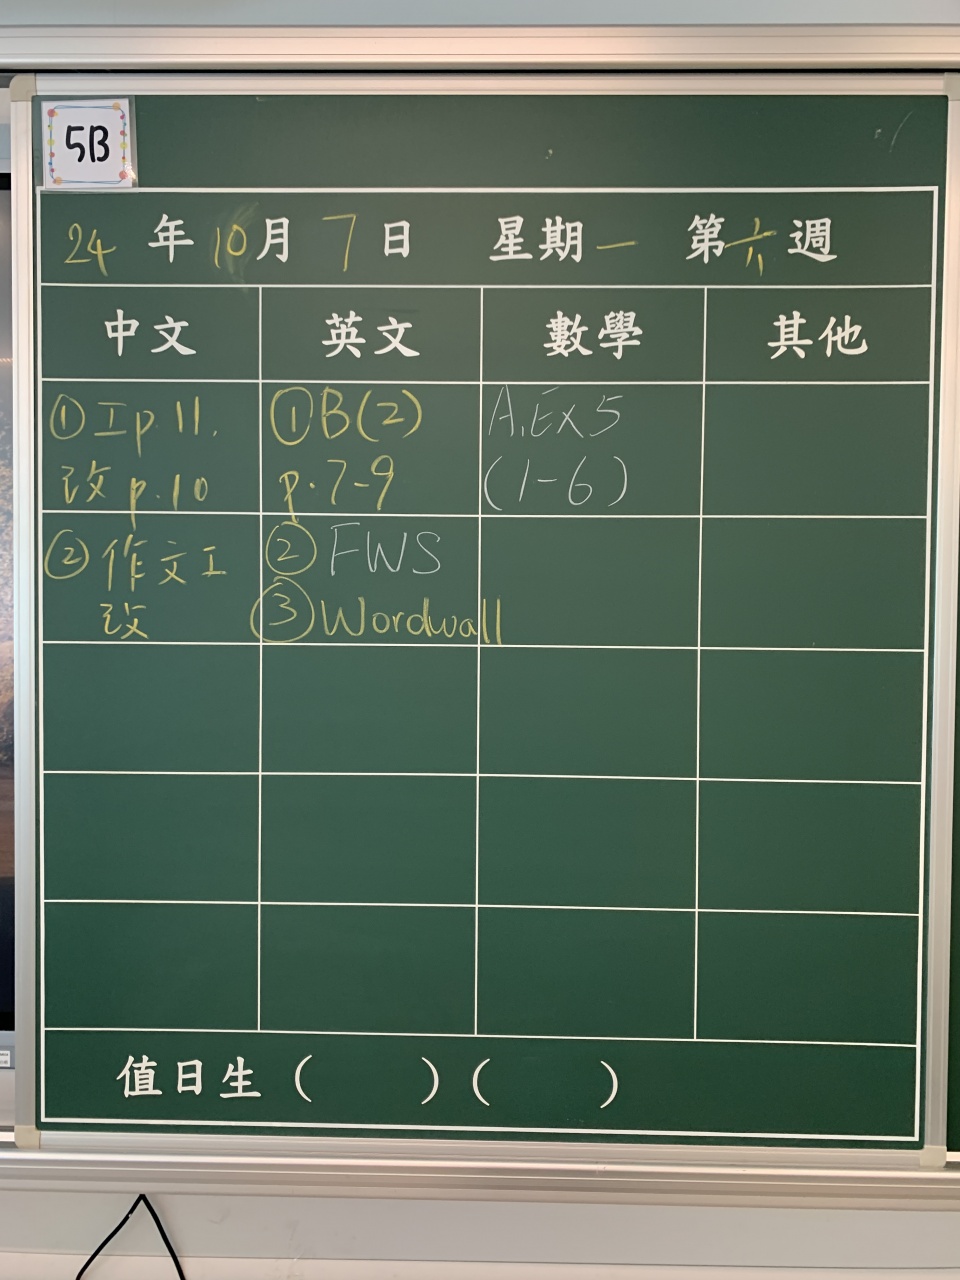 5B
24年10月7日 星期一 第六週
中文 英文 數學 其他
①工p.11.
改p.10
①B(2)
p.7-9
A.Ex5
(1-6)
②作文工
改
②FWS
③Wordwall
值日生( )( )